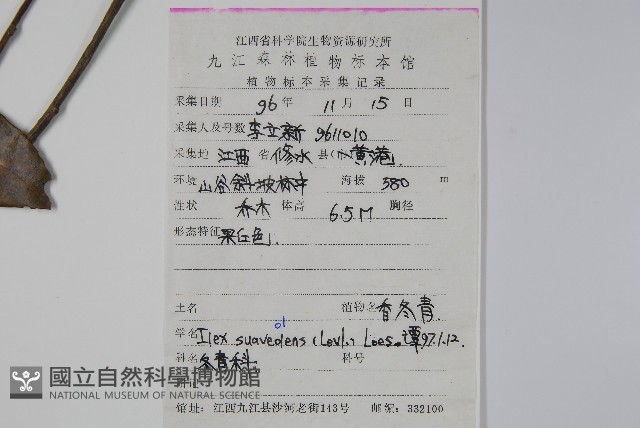 江西省科学院生物资源研究所
九江森林植物标本馆
植物标本采集记录
采集日期 96 年 11 月 15 日
采集人及号数 李立新 9611010
采集地 江西 省 修水 县 黄港
环境 山谷斜坡林中 海拔 580 m
性状 乔木 体高 6.5M 胸径
形态特征 果红色.
土名 植物名 香冬青
学名 Ilex suaveolens (Levl.) Loes. 谭97.1.12.
科名 冬青科 科号
國立自然科學博物館
NATIONAL MUSEUM OF NATURAL SCIENCE
馆址：江西九江县沙河老街143号 邮编：332100